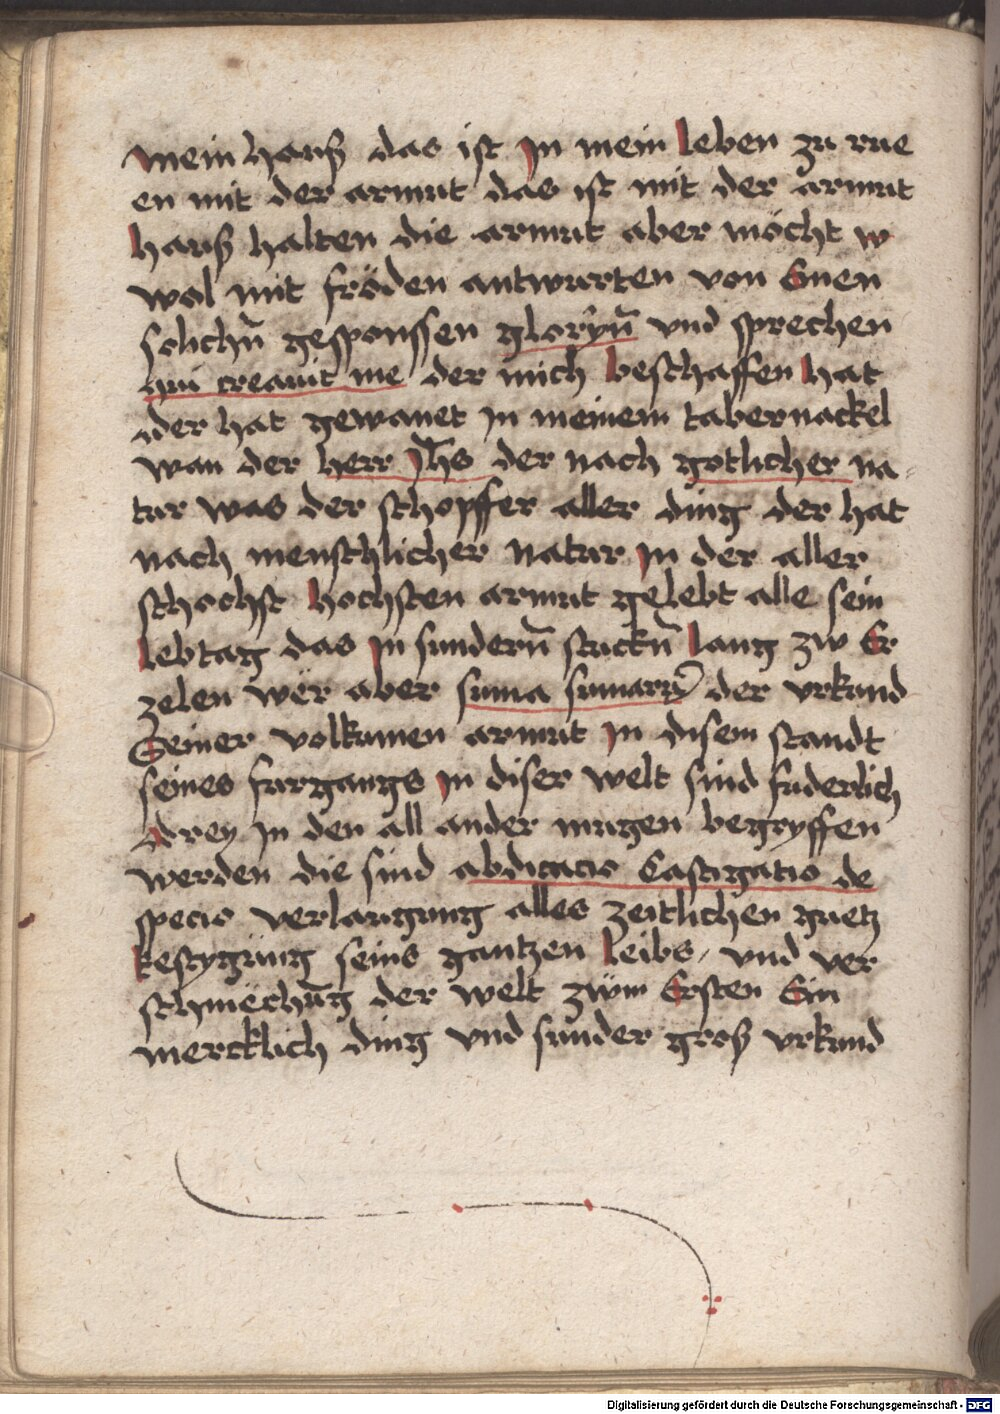 mein hauß das ist In mein leben zu rue
en mit der armut das ist mit der armut
hauß halten die armut aber möcht w
wol mit fröden antwurten von Einen
solichn̄ gesponssen gloryn̄ vnd sprechen
qui creauit me der mich beschaffen hat
der hat gewonet in meinem tabernackel
wan der herr Jh̄s der nach gotlicher na
tur was der schopffer aller ding der hat
nach menschlicher natur In der aller
schochst hochsten armut gelebt alle sein
lebtag das In sundern̄ stuckn̄ lang zw Er
zelen wër aber suma sumarū der vrkund
Seiner volkumen armut In disem standt
seines furgangs In diser welt sind suderlich
drey In den all ander mugen begryffen
werden die sind abdicacio Castigatio de
specio verlaugung alles zeitlichen guetz
kestygung seins gantzen leibs / vnd ver
schmëchūg der welt zum Ersten Ein
mercklich ding vnd sunder groß vrkund
Digitalisierung gefördert durch die Deutsche Forschungsgemeinschaft - DFG